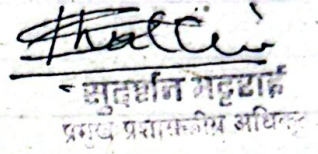 सुदर्शन भट्टराई
प्रमुख प्रशासकीय अधिकृत